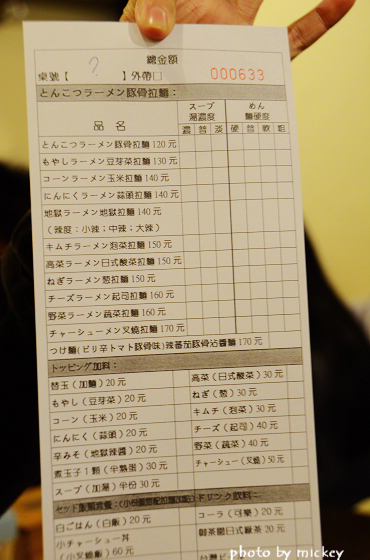 總金額
桌號【 ? 】外帶□ 000633
とんこつラーメン豚骨拉麵：
品名 スープ 湯濃度 めん 麵硬度
濃 普 淡 硬 普 軟 粗
とんこつラーメン豚骨拉麵 120元
もやしラーメン豆芽菜拉麵 130元
コーンラーメン玉米拉麵 140元
にんにくラーメン蒜頭拉麵 140元
地獄ラーメン地獄拉麵 140元
（辣度：小辣；中辣；大辣）
キムチラーメン泡菜拉麵 150元
高菜ラーメン日式酸菜拉麵 150元
ねぎラーメン葱拉麵 150元
チーズラーメン起司拉麵 160元
野菜ラーメン蔬菜拉麵 160元
チャーシューメン叉燒拉麵 170元
つけ麵(ピリ辛トマト豚骨味)辣番茄豚骨沾醬麵 170元
トッピング加料：
替玉（加麵）20元 高菜（日式酸菜）30元
もやし（豆芽菜）20元 ねぎ（葱）30元
コーン（玉米）20元 キムチ（泡菜）30元
にんにく（蒜頭）20元 チーズ（起司）40元
辛みそ（地獄辣醬）20元 野菜（蔬菜）40元
煮玉子1顆（半熟蛋）30元 チャーシュー（叉燒）50元
スープ（加湯）半份 30元
ドリンク飲料：
白ごはん（白飯）20元 コーラ（可樂）20元
小チャーシュー丼 御茶園日式綠茶 20元
（小叉燒飯）60元
photo by mickey